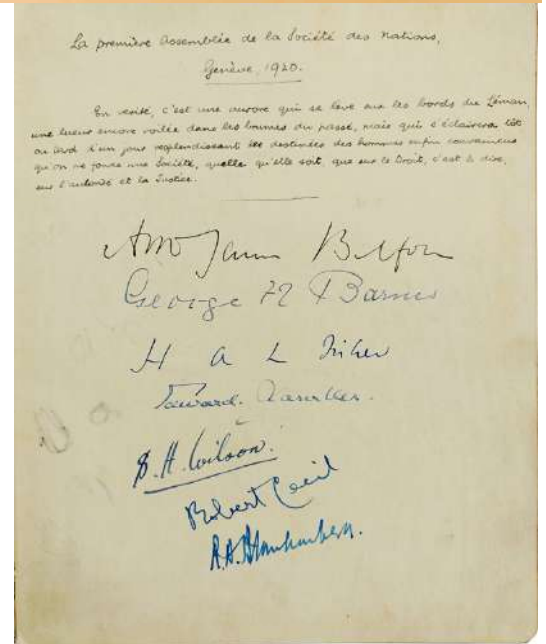 La première Assemblée de la Société des Nations,
Genève, 1920.
En vérité, c'est une aurore qui se lève sur les bords du Léman,
une lueur encore voilée dans les brumes du passé, mais qui s'éclairera tôt
ou tard d'un jour resplendissant les destinées des hommes enfin convaincus
qu'on ne fonde une Société, quelle qu'elle soit, que sur le Droit, c'est à dire,
sur l'autorité et la Justice.
Arthur James Balfour
George N Barnes
H A L Fisher
Edward
S. H. Wilson.
Robert Cecil
R. A. Blankenberg.